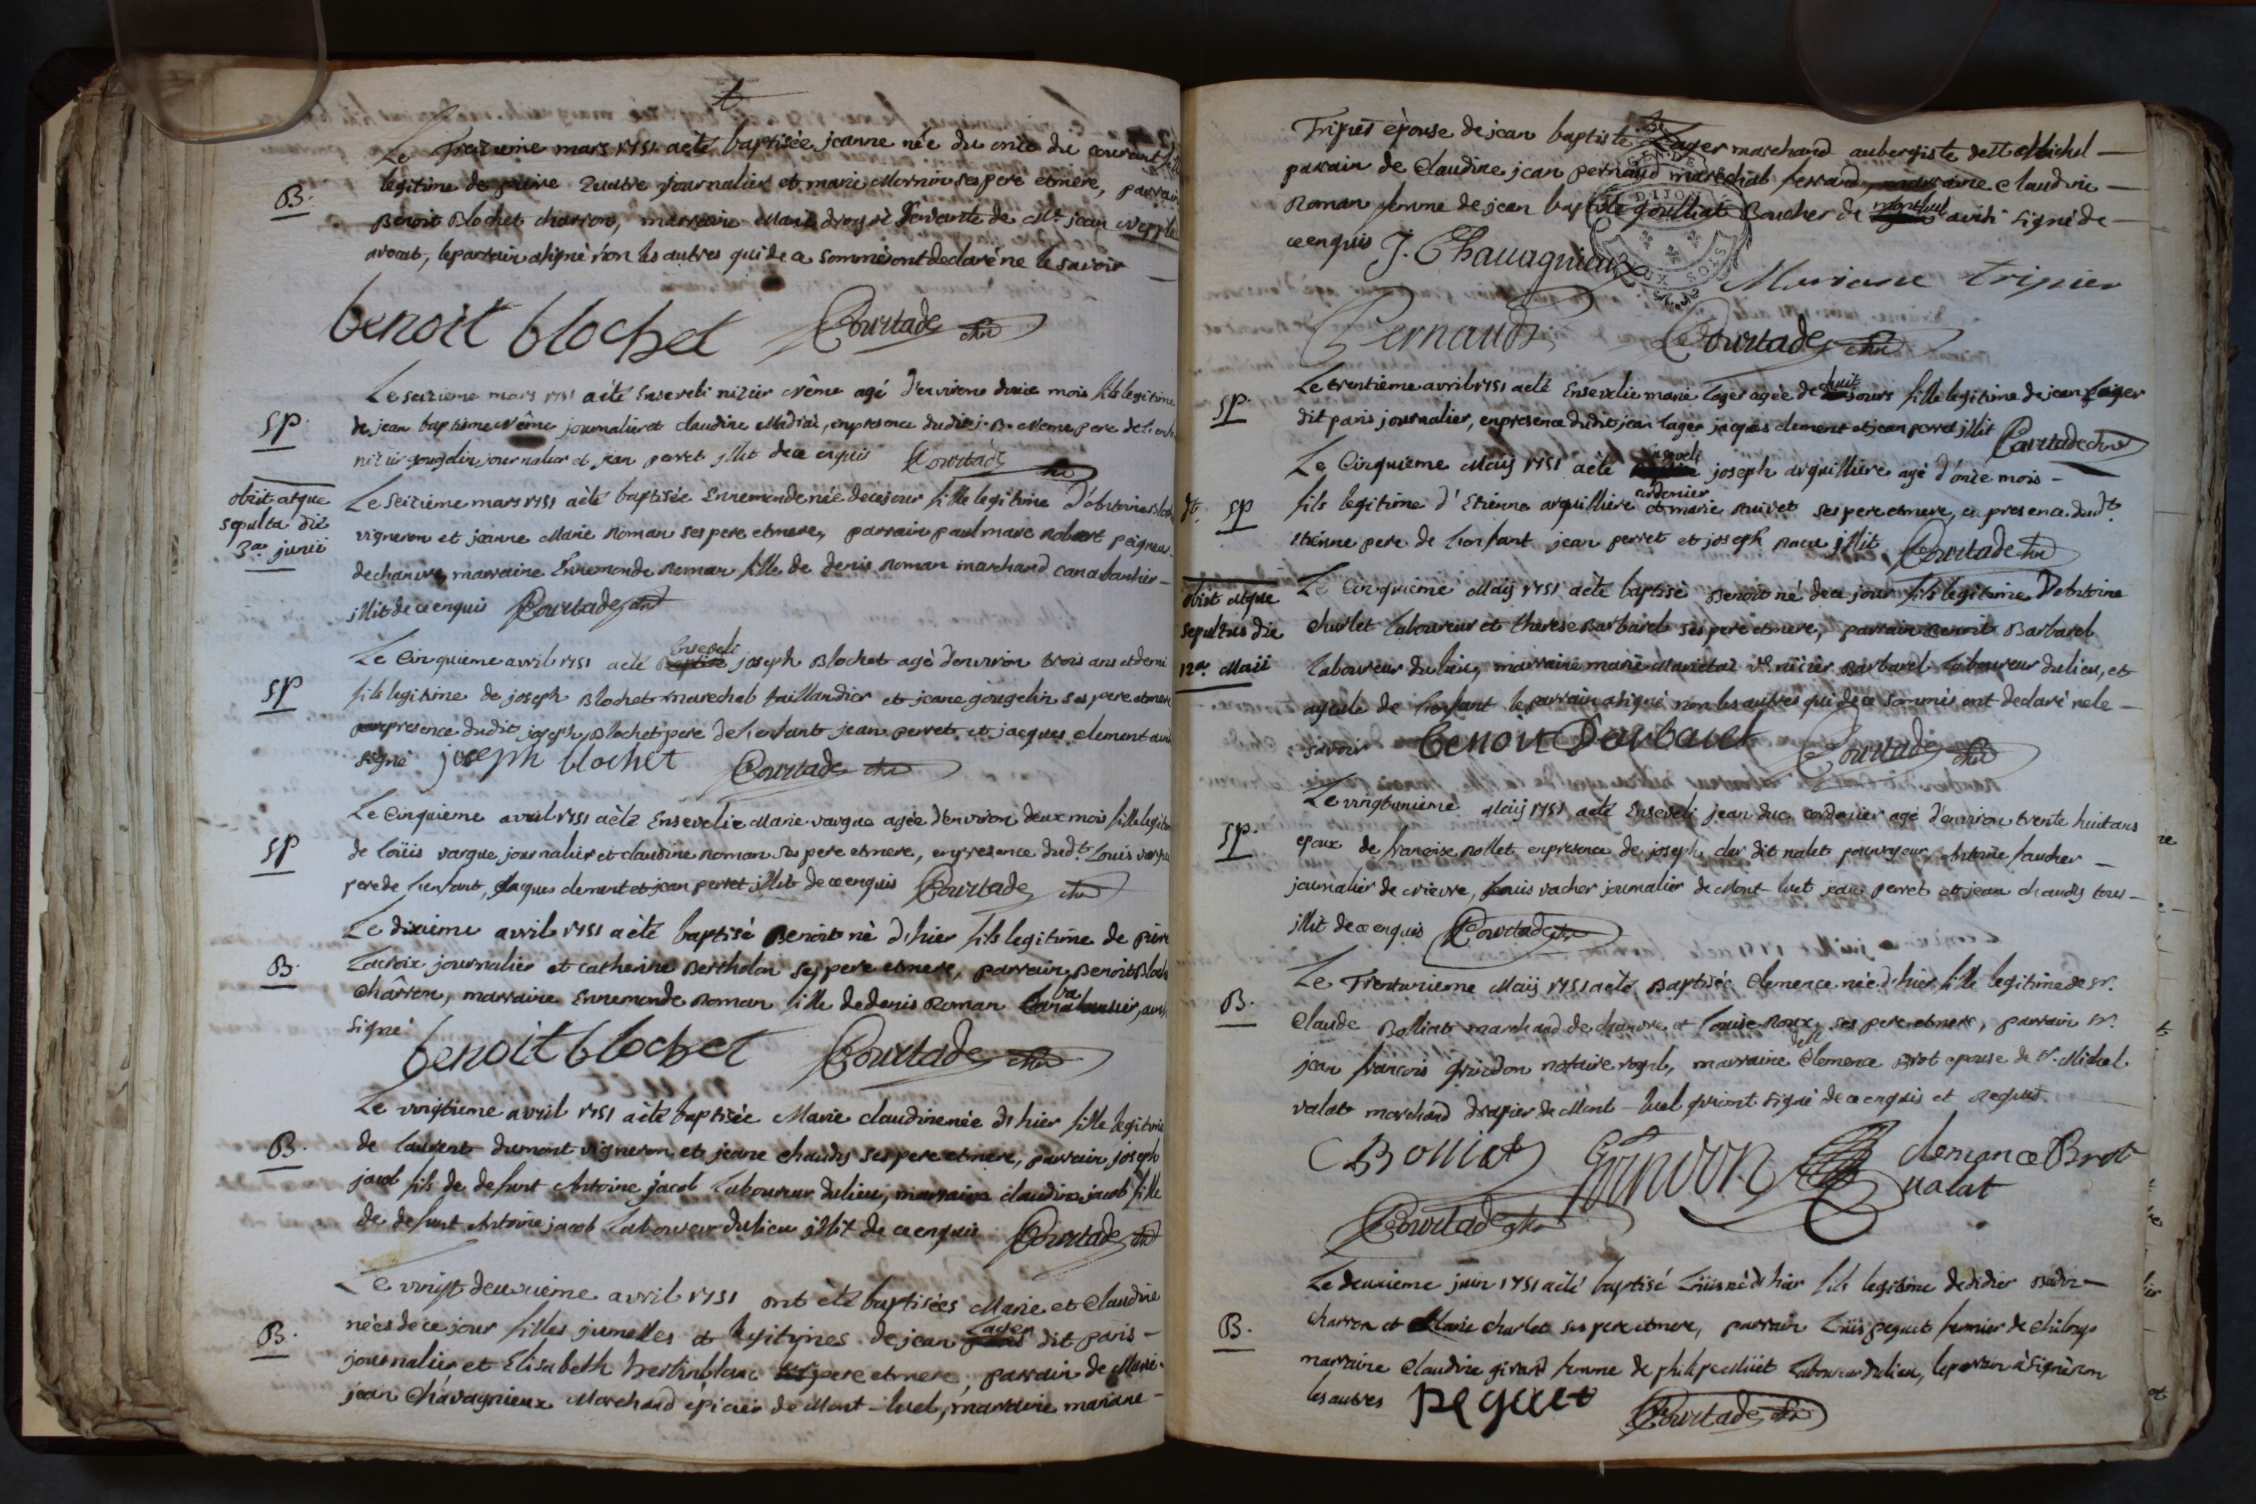 Le Treizieme mars 1751 aété baptisée jeanne née du onze du courant fille
legitime de pierre Quatre journalier et marie Mornin ses pere etmere, parrain
B.
Benoit Blochet charron, marraine Marie servante de Mr. jean
avocat, leparrain asigné non les autres qui de ce sommés ont declaré ne le savoir
benoit blochet Courtade
Le seizieme mars 1751 aété Enseveli nizier Même agé d'environ douze mois fils legitime
SP.
de jean baptiste Même journalier et claudine, enpresence dudit j. B. Meme pere de l'enfant
nizier gougelin journalier et jean perret illit dece enquis Courtade
obiit atque
sepulta die
3a. junii
Le Seizieme mars 1751 aété baptisée Ennemonde née decejour fille legitime d'Antoine
vigneron et jeanne Marie Roman ses pere etmere, parrain paul marc Robert peigneur
dechanvre, marraine Ennemonde Roman fille de denis Roman marchand canabassier
illit de ce enquis Courtade
Le Cinquieme avril 1751 aété Enseveli joseph Blochet agé d'environ trois ans et demi
SP
fils legitime de joseph Blochet marechal taillandier et jeane gougelin ses pere et mere
presence dudit joseph Blochet pere de l'enfant jean perret et jacques clement
signé joseph blochet Courtade
Le Cinquieme avril 1751 aété Ensevelie Marie vargue agée d'environ deux mois fille legitime
SP
de Loüis vargue journalier et claudine Roman ses pere etmere, enpresence dudt. Louis vargue
perede l'enfant, Jaques clement et jean perret illit de ce enquis Courtade
Le dixieme avril 1751 aété baptisé Benoit né d'hier fils legitime de pierre
B.
Lacroix journalier et catherine Bertholon ses pere etmere, parrain Benoit Blochet
Charron, marraine Ennemonde Roman fille dedenis Roman
signé
benoit blochet Courtade
Le vingtieme avril 1751 aété baptisée Marie claudine née d'hier fille legitime
B.
de laurent dumont vigneron et jeane chaudy ses pere etmere, parrain joseph
jacob fils de defunt Antoine jacob Laboureur dulieu, marraine claudine jacob fille
de defunt Antoine jacob Laboureur dulieu illit de ce enquis Courtade
Le vingt deuxieme avril 1751 ont été baptisées Marie et Claudine
nées de ce jour filles jumelles et legitimes de jean Lager dit paris
B.
journalier et Elisabeth pere etmere, parrain de Marie
jean Chavagnieux Marchand épicier de Mont-luel, marraine mariane
Tripier épouse de jean baptiste Lager marchand aubergiste
parrain de Claudine jean pernaud marechal ferrand, marraine claudine
Roman femme de jean baptiste goulliat Boucher de montluel signé de
ce enquis J. Chavagnieux Mariane tripier
Pernaud Courtade
Le trentieme avril 1751 aété Ensevelie marie Lager agée de huit jours fille legitime de jean Lager
SP.
dit paris journalier, enpresence dudit jean Lager jacques clement et jean perret illit Courtade
Le Cinquieme Maij 1751 aété Enseveli joseph arquilliere agé d'onze mois
SP
fils legitime d'Etienne arquilliere cordonier et marie ses pere etmere, en presence dudt.
etienne pere de l'enfant jean perret et joseph illit Courtade
obiit atque
sepultus die
12a. Maii
Le Cinquieme Maij 1751 aété baptisé Benoit né de ce jour fils legitime D'Antoine
Charlet Laboureur et therese Barbaret ses pere etmere, parrain Benoit Barbaret
Laboureur dulieu, marraine marie ve. nizier Barbaret Laboureur dulieu, et
ayeule de l'enfant le parrain asigné non les autres qui de ce sommés ont declaré nele
savoir Benoit Barbaret Courtade
Le vingtunieme Maij 1751 aété Enseveli jean duc cordonier agé d'environ trente huit ans
SP.
epoux de françoise Rollet enpresence de joseph dit nalet pourvoyeur, Antoine faucher
journalier de crieure, Louis vacher journalier de Mont-luel jean perret et jean chaudy tous
illit de ce enquis Courtade
Le Trentunieme Maij 1751 aété Baptisée Clemence née d'hier fille legitime de sr.
B.
Claude Bolliat marchand de chanvre et Louise Roux ses pere etmere, parrain Mr.
jean françois Guindon notaire royal, marraine delle Clemence Brot epouse de sr. Michel
valat marchand drapier de Mont-luel qui ont signé de ce enquis et requis
Bolliat Guindon clemance Brot
valat
Courtade
Le deuxieme juin 1751 aété baptisé Loüis né d'hier fils legitime dedidier
B.
charron et Marie Charlet ses pere etmere, parrain Loüis peguet fermier de
marraine Claudine girard femme de philipe Laboureur dulieu, leparrain à signé non
les autres peguet Courtade